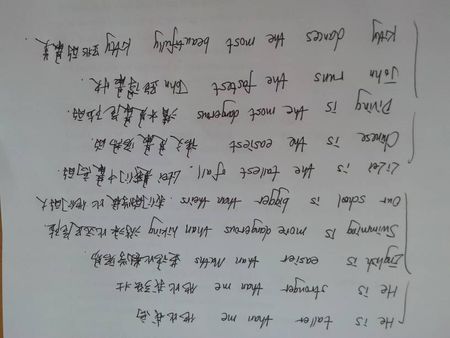 He is taller than me 他比我高
He is stronger than me 他比我强壮
English is easier than Maths 英语比数学容易
Swimming is more dangerous than hiking 游泳比远足危险.
Our school is bigger than theirs. 我们学校比他们的大
LiLei is the tallest of all. LiLei 最高的.
Chinese is the easiest 语文是最容易的
Diving is the most dangerous 潜水是最危险的
John runs the fastest John 跑得最快.
Kitty dances the most beautifully Kitty 跳的最美